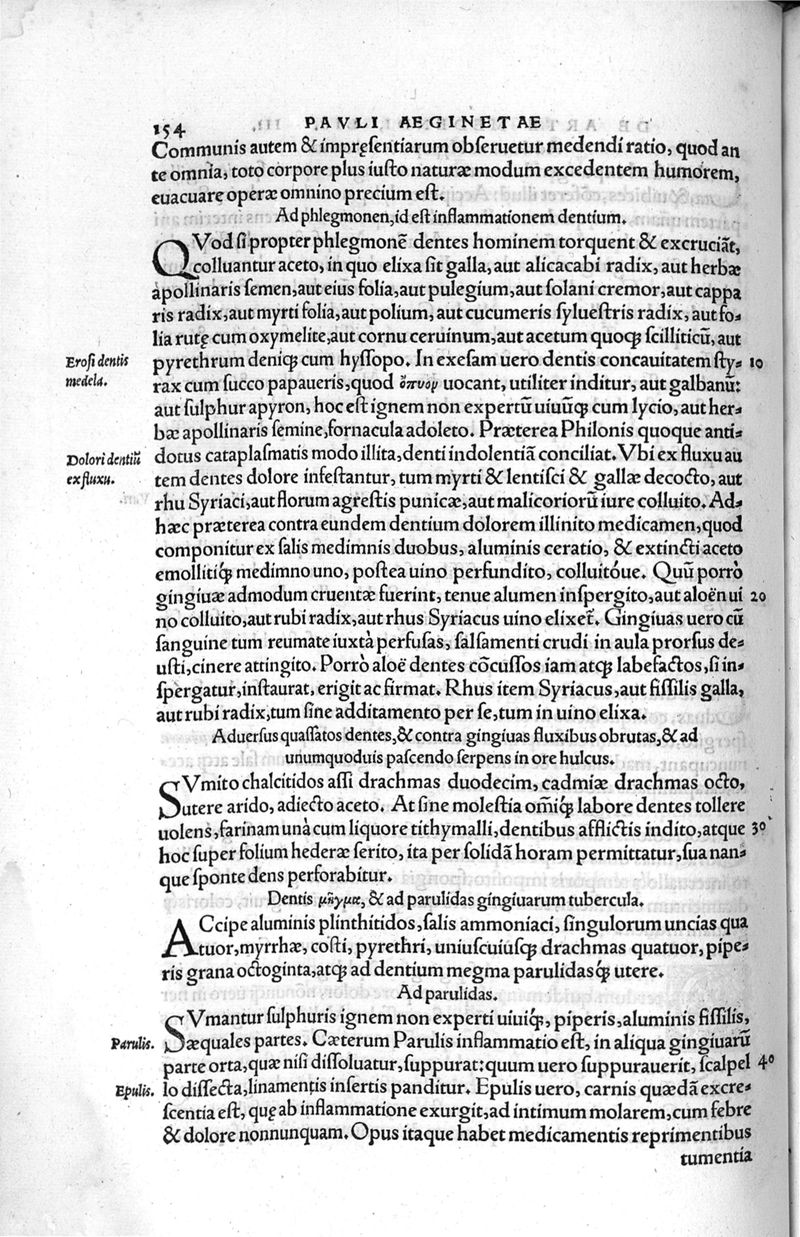 154 PAVLI AEGINETAE
Communis autem & impręsentiarum obseruetur medendi ratio, quod an
te omnia, toto corpore plus iusto naturæ modum excedentem humorem,
euacuare operæ omnino precium est.
Ad phlegmonen, id est inflammationem dentium.
QVod si propter phlegmonē dentes hominem torquent & excruciāt,
colluantur aceto, in quo elixa sit galla, aut alicacabi radix, aut herbæ
apollinaris semen, aut eius folia, aut pulegium, aut solani cremor, aut cappa
ris radix, aut myrti folia, aut polium, aut cucumeris syluestris radix, aut fo-
lia rutę cum oxymelite, aut cornu ceruinum, aut acetum quoq; scilliticū, aut
Erosi dentis pyrethrum deniq; cum hyssopo. In exesam uero dentis concauitatem sty- 10
medela. rax cum succo papaueris, quod ὄπνορ uocant, utiliter inditur, aut galbanū:
aut sulphur apyron, hoc est ignem non expertū uiuūq; cum lycio, aut her-
bæ apollinaris semine, fornacula adoleto. Præterea Philonis quoque anti-
Dolori dentiū dotus cataplasmatis modo illita, denti indolentiā conciliat. Vbi ex fluxu au
ex fluxu. tem dentes dolore infestantur, tum myrti & lentisci & gallæ decocto, aut
rhu Syriaci, aut florum agrestis punicæ, aut malicoriorū iure colluito. Ad-
hæc præterea contra eundem dentium dolorem illinito medicamen, quod
componitur ex salis medimnis duobus, aluminis ceratio, & extincti aceto
emollitiq́; medimno uno, postea uino perfundito, colluitóue. Quū porrò
gingiuæ admodum cruentæ fuerint, tenue alumen inspergito, aut aloën ui 20
no colluito, aut rubi radix, aut rhus Syriacus uino elixet̃. Gingiuas uero cū
sanguine tum reumate iuxtà perfusas, salsamenti crudi in aula prorsus de-
usti, cinere attingito. Porrò aloë dentes cōcussos iam atq; labefactos, si in-
spergatur, instaurat, erigit ac firmat. Rhus item Syriacus, aut fissilis galla,
aut rubi radix, tum sine additamento per se, tum in uino elixa.
Aduersus quassatos dentes, & contra gingiuas fluxibus obrutas, & ad
unumquoduis pascendo serpens in ore hulcus.
SVmito chalcitidos assi drachmas duodecim, cadmiæ drachmas octo,
utere arido, adiecto aceto. At sine molestia om̄iq́; labore dentes tollere
uolens, farinam unà cum liquore tithymalli, dentibus afflictis indito, atque 30
hoc super folium hederæ serito, ita per solidā horam permittatur, sua nan-
que sponte dens perforabitur.
Dentis μῆγμα, & ad parulidas gingiuarum tubercula.
ACcipe aluminis plinthitidos, salis ammoniaci, singulorum uncias qua
tuor, myrrhæ, costi, pyrethri, uniuscuiusq; drachmas quatuor, pipe-
ris grana octoginta, atq; ad dentium megma parulidasq́; utere.
Ad parulidas.
SVmantur sulphuris ignem non experti uiuiq́;, piperis, aluminis fissilis,
Parulis. æquales partes. Cæterum Parulis inflammatio est, in aliqua gingiuarū
parte orta, quæ nisi dissoluatur, suppurat: quum uero suppurauerit, scalpel 40
Epulis. lo dissecta, linamentis insertis panditur. Epulis uero, carnis quædā excre-
scentia est, quę ab inflammatione exurgit, ad intimum molarem, cum febre
& dolore nonnunquam. Opus itaque habet medicamentis reprimentibus
tumentia